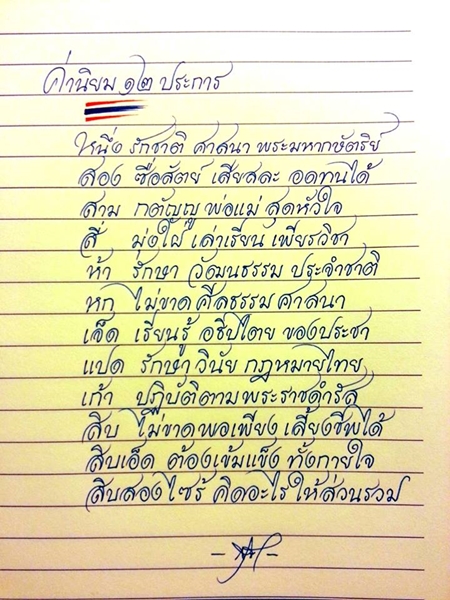 ค่านิยม ๑๒ ประการ
หนึ่ง รักชาติ ศาสนา พระมหากษัตริย์
สอง ซื่อสัตย์ เสียสละ อดทนได้
สาม กตัญญู พ่อแม่ สุดหัวใจ
สี่ มุ่งใฝ่ เล่าเรียน เพียรวิชา
ห้า รักษา วัฒนธรรม ประจำชาติ
หก ไม่ขาด ศีลธรรม ศาสนา
เจ็ด เรียนรู้ อธิปไตย ของประชา
แปด รักษา วินัย กฎหมายไทย
เก้า ปฏิบัติตาม พระราชดำรัส
สิบ ไม่ขาด พอเพียง เลี้ยงชีพได้
สิบเอ็ด ต้องเข้มแข็ง ทั้งกายใจ
สิบสอง ไซร้ คิดอะไร ให้ส่วนรวม